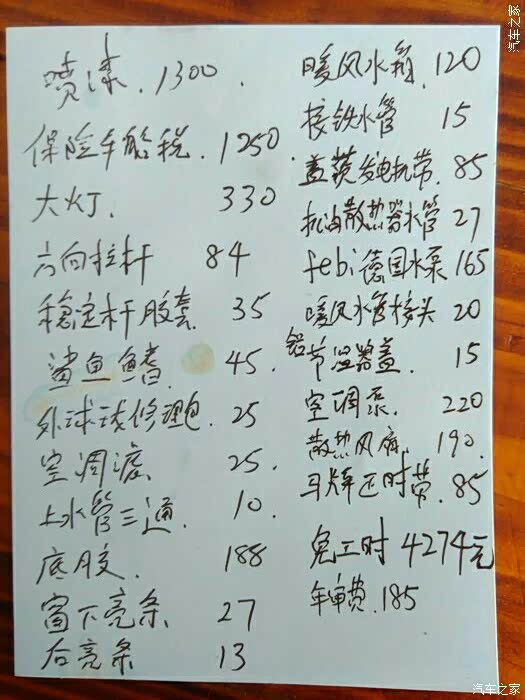 喷漆.1300.
保险车船税.1250.
大灯.330
方向拉杆 84
稳定杆胶套.35
鲨鱼鳍.45.
外球笼修理包.25
空调滤 25.
上水管三通.10.
底胶.188
窗下亮条 27
后亮条 13
暖风水箱.120
接铁水管 15
盖茨发电机带.85
机油散热器水管 27
febi德国水泵 165
暖风水管接头 20
铝节温器盖.15
空调泵.220
散热风扇.190.
马牌正时带.85
免工时 4274元
年审费.185
汽车之家
汽车之家